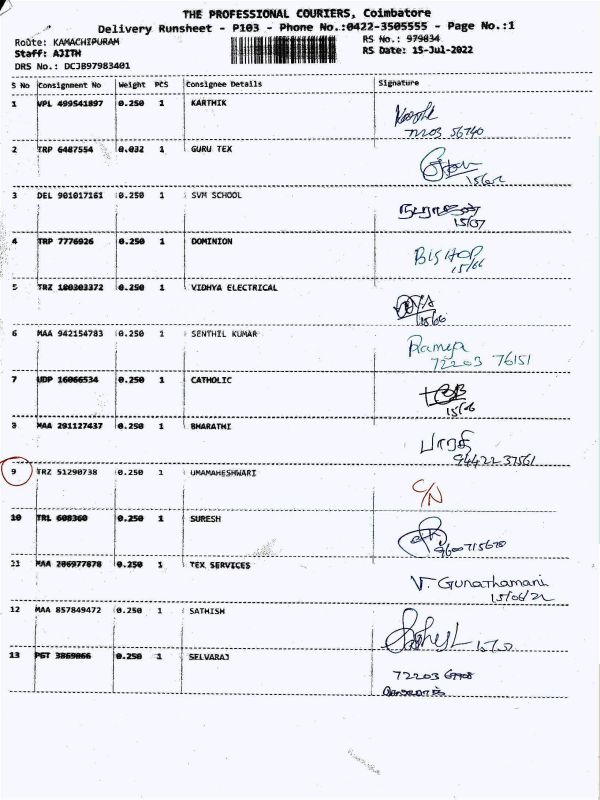 THE PROFESSIONAL COURIERS, Coimbatore
Delivery Runsheet - P103 - Phone No.:0422-3505555 - Page No.:1
Route: KAMACHIPURAM
RS No.: 979834
Staff: AJITH
RS Date: 15-Jul-2022
DRS No.: DCJB97983401
S No Consignment No Weight PCS Consignee Details Signature
1 VPL 499541897 0.250 1 KARTHIK
72203 56740
2 TRP 6487554 0.032 1 GURU TEX
3 DEL 901017161 0.250 1 SVM SCHOOL
15/07
4 TRP 7776926 0.250 1 DOMINION BISHOP
15/06
5 TRZ 180303372 0.250 1 VIDHYA ELECTRICAL
15/06
6 MAA 942154783 0.250 1 SENTHIL KUMAR Ramya
72203 76151
7 UDP 16066534 0.250 1 CATHOLIC
15/06
8 MAA 291127437 0.250 1 BHARATHI பாரதி
94422 37561
9 TRZ 51290738 0.250 1 UMAMAHESHWARI C/N
10 TRL 608360 0.250 1 SURESH
9600715670
11 MAA 206977878 0.250 1 TEX SERVICES V. Gunathamani
15/06/22
12 MAA 857849472 0.250 1 SATHISH
13 PGT 3869066 0.250 1 SELVARAJ
72203